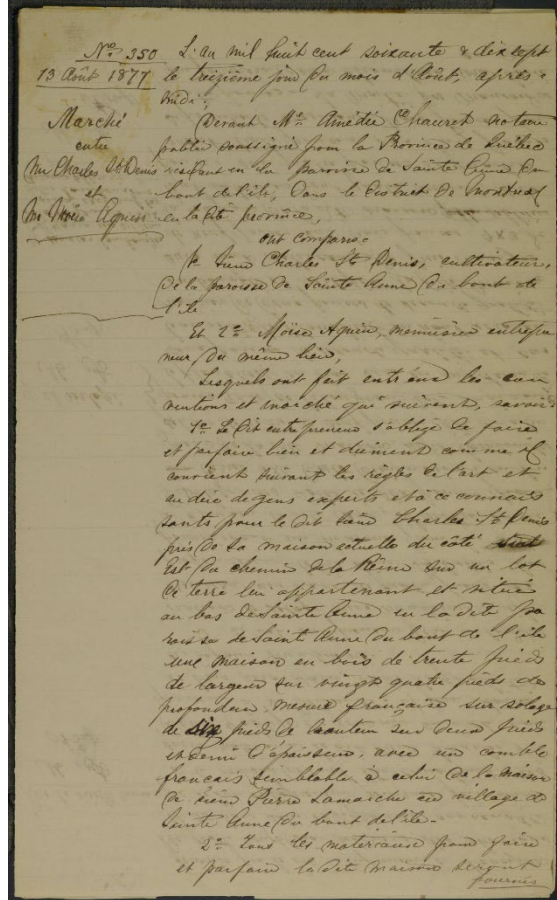 No. 350
13 Août 1877
Marché
entre
Mr Charles St Denis
et
Mr Moïse Aquin
L'an mil huit cent soixante & dix sept
le treizième jour du mois d'Août, après-
midi;
Devant Mtre Amédée Chauret notaire
public soussigné pour la Province de Québec
résidant en la paroisse de Sainte Anne du
bout de l'île, dans le District de Montréal
en la dite province,
ont comparu
le Sieur Charles St Denis, cultivateur,
de la paroisse de Sainte Anne du bout de
l'île
Et 2o Moïse Aquin, menuisier entrepre
neur, du même lieu,
Lesquels ont fait entr'eux les con
ventions et marché qui suivent, savoir:
1o Le dit entrepreneur s'oblige de faire
et parfaire bien et dûment comme il
convient suivant les règles de l'art et
au dire de gens experts et à ce connais
sants pour le dit Sieur Charles St Denis
près de sa maison actuelle du côté
Est du chemin de la Reine sur un lot
de terre lui appartenant et situé
au bas de Sainte Anne en la dite pa
roisse de Sainte Anne du bout de l'île
une maison en bois de trente pieds
de largeur sur vingt quatre pieds de
profondeur mesure française sur solage
de six pieds de hauteur sur deux pieds
et demi d'épaisseur, avec un comble
français semblable à celui de la maison
de sieur Pierre Lamarche au village de
Sainte Anne du bout de l'île.
2o Tous les matériaux pour faire
et parfaire la dite maison seront
fournis